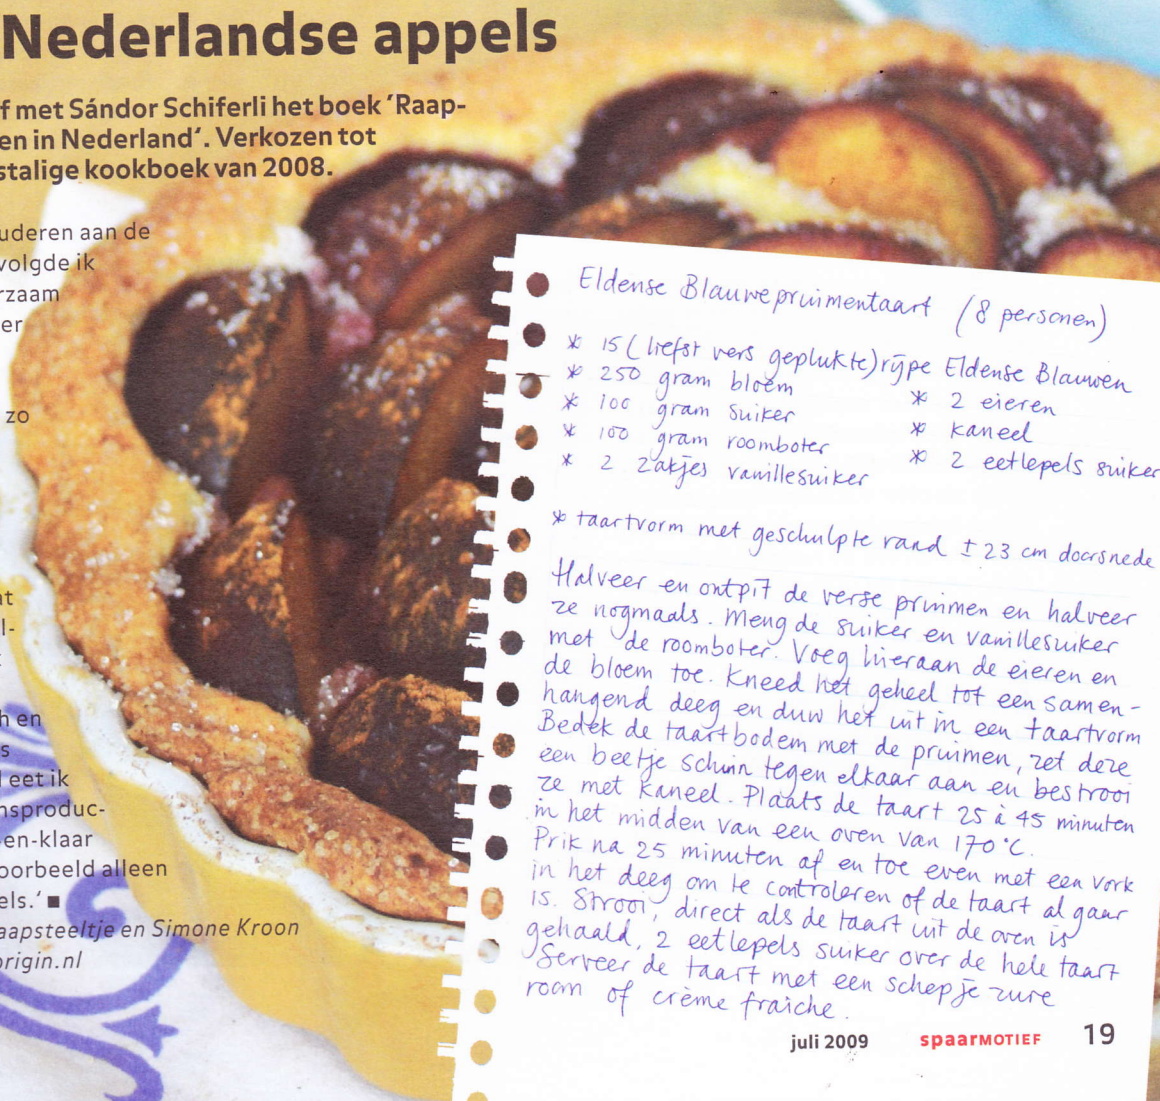 Nederlandse appels
f met Sándor Schiferli het boek 'Raap-
en in Nederland'. Verkozen tot
stalige kookboek van 2008.
uderen aan de
volgde ik
rzaam
er
zo
at
l-
h en
s
l eet ik
nsproduc-
-en-klaar
oorbeeld alleen
els.' ■
aapsteeltje en Simone Kroon
origin.nl
Eldense Blauwepruimentaart (8 personen)
* 15 (liefst vers geplukte) rijpe Eldense Blauwen
* 250 gram bloem
* 100 gram suiker
* 100 gram roomboter
* 2 zakjes vanillesuiker
* 2 eieren
* kaneel
* 2 eetlepels suiker
* taartvorm met geschulpte rand ± 23 cm doorsnede
Halveer en ontpit de verse pruimen en halveer
ze nogmaals. Meng de suiker en vanillesuiker
met de roomboter. Voeg hieraan de eieren en
de bloem toe. Kneed het geheel tot een samen-
hangend deeg en duw het uit in een taartvorm
Bedek de taartbodem met de pruimen, zet deze
een beetje schuin tegen elkaar aan en bestrooi
ze met kaneel. Plaats de taart 25 à 45 minuten
in het midden van een oven van 170°C.
Prik na 25 minuten af en toe even met een vork
in het deeg om te controleren of de taart al gaar
is. Strooi, direct als de taart uit de oven is
gehaald, 2 eetlepels suiker over de hele taart
Serveer de taart met een schepje zure
room of crème fraîche.
juli 2009 spaarMOTIEF 19